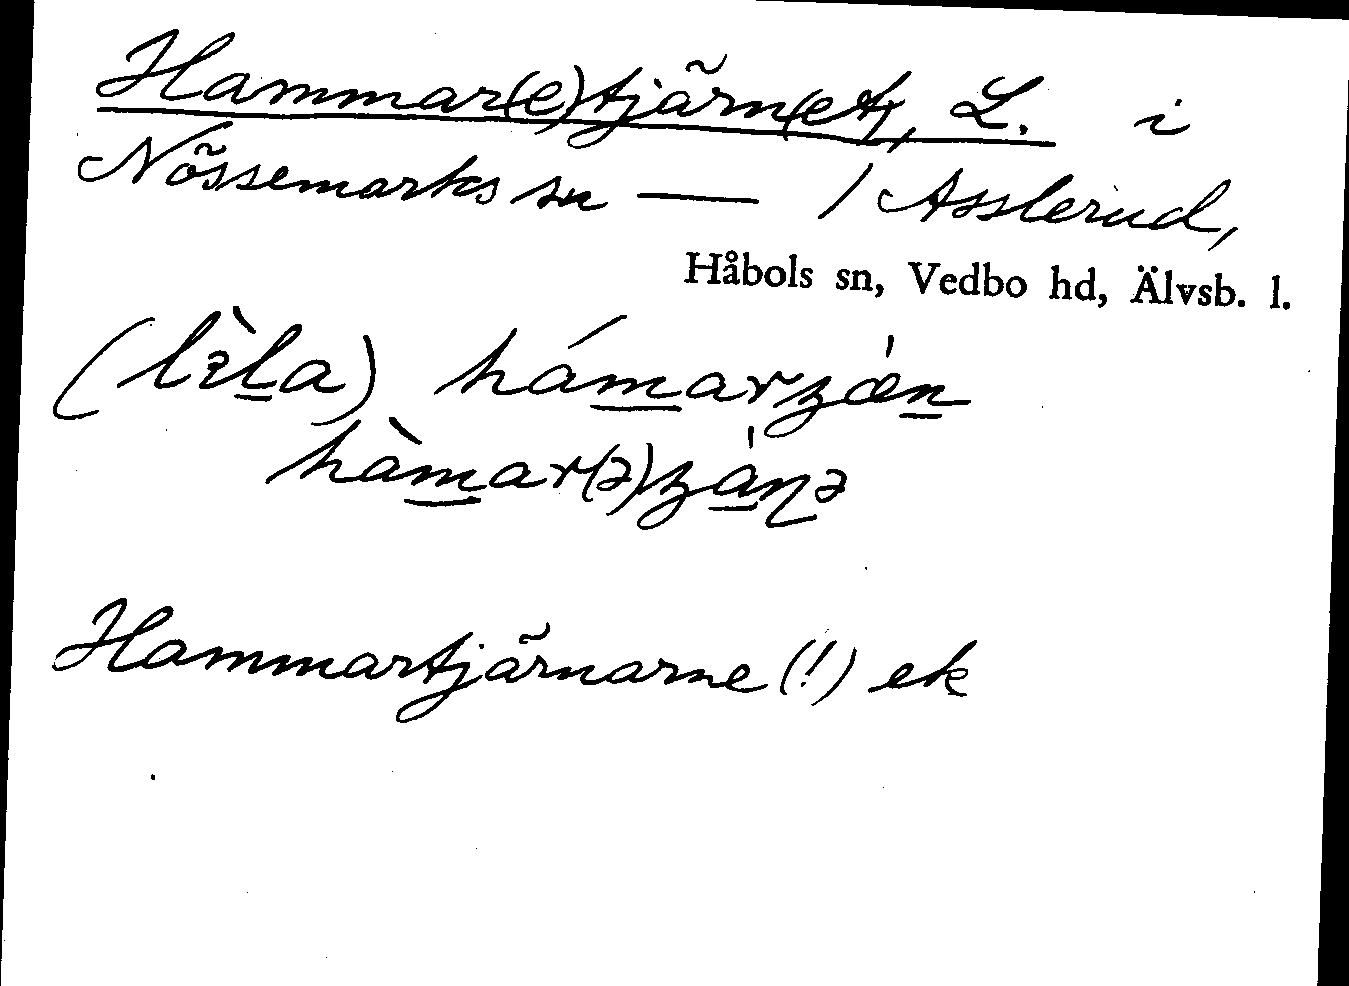 Hammar(e)tjärn(et), L. i
Nössemarks sn — / Asslerud,
Håbols sn, Vedbo hd, Älvsb. l.
(lìla) hámarʒæ̀n
hàmar(ə)ʒàɳə
Hammartjärnarne (!) ek